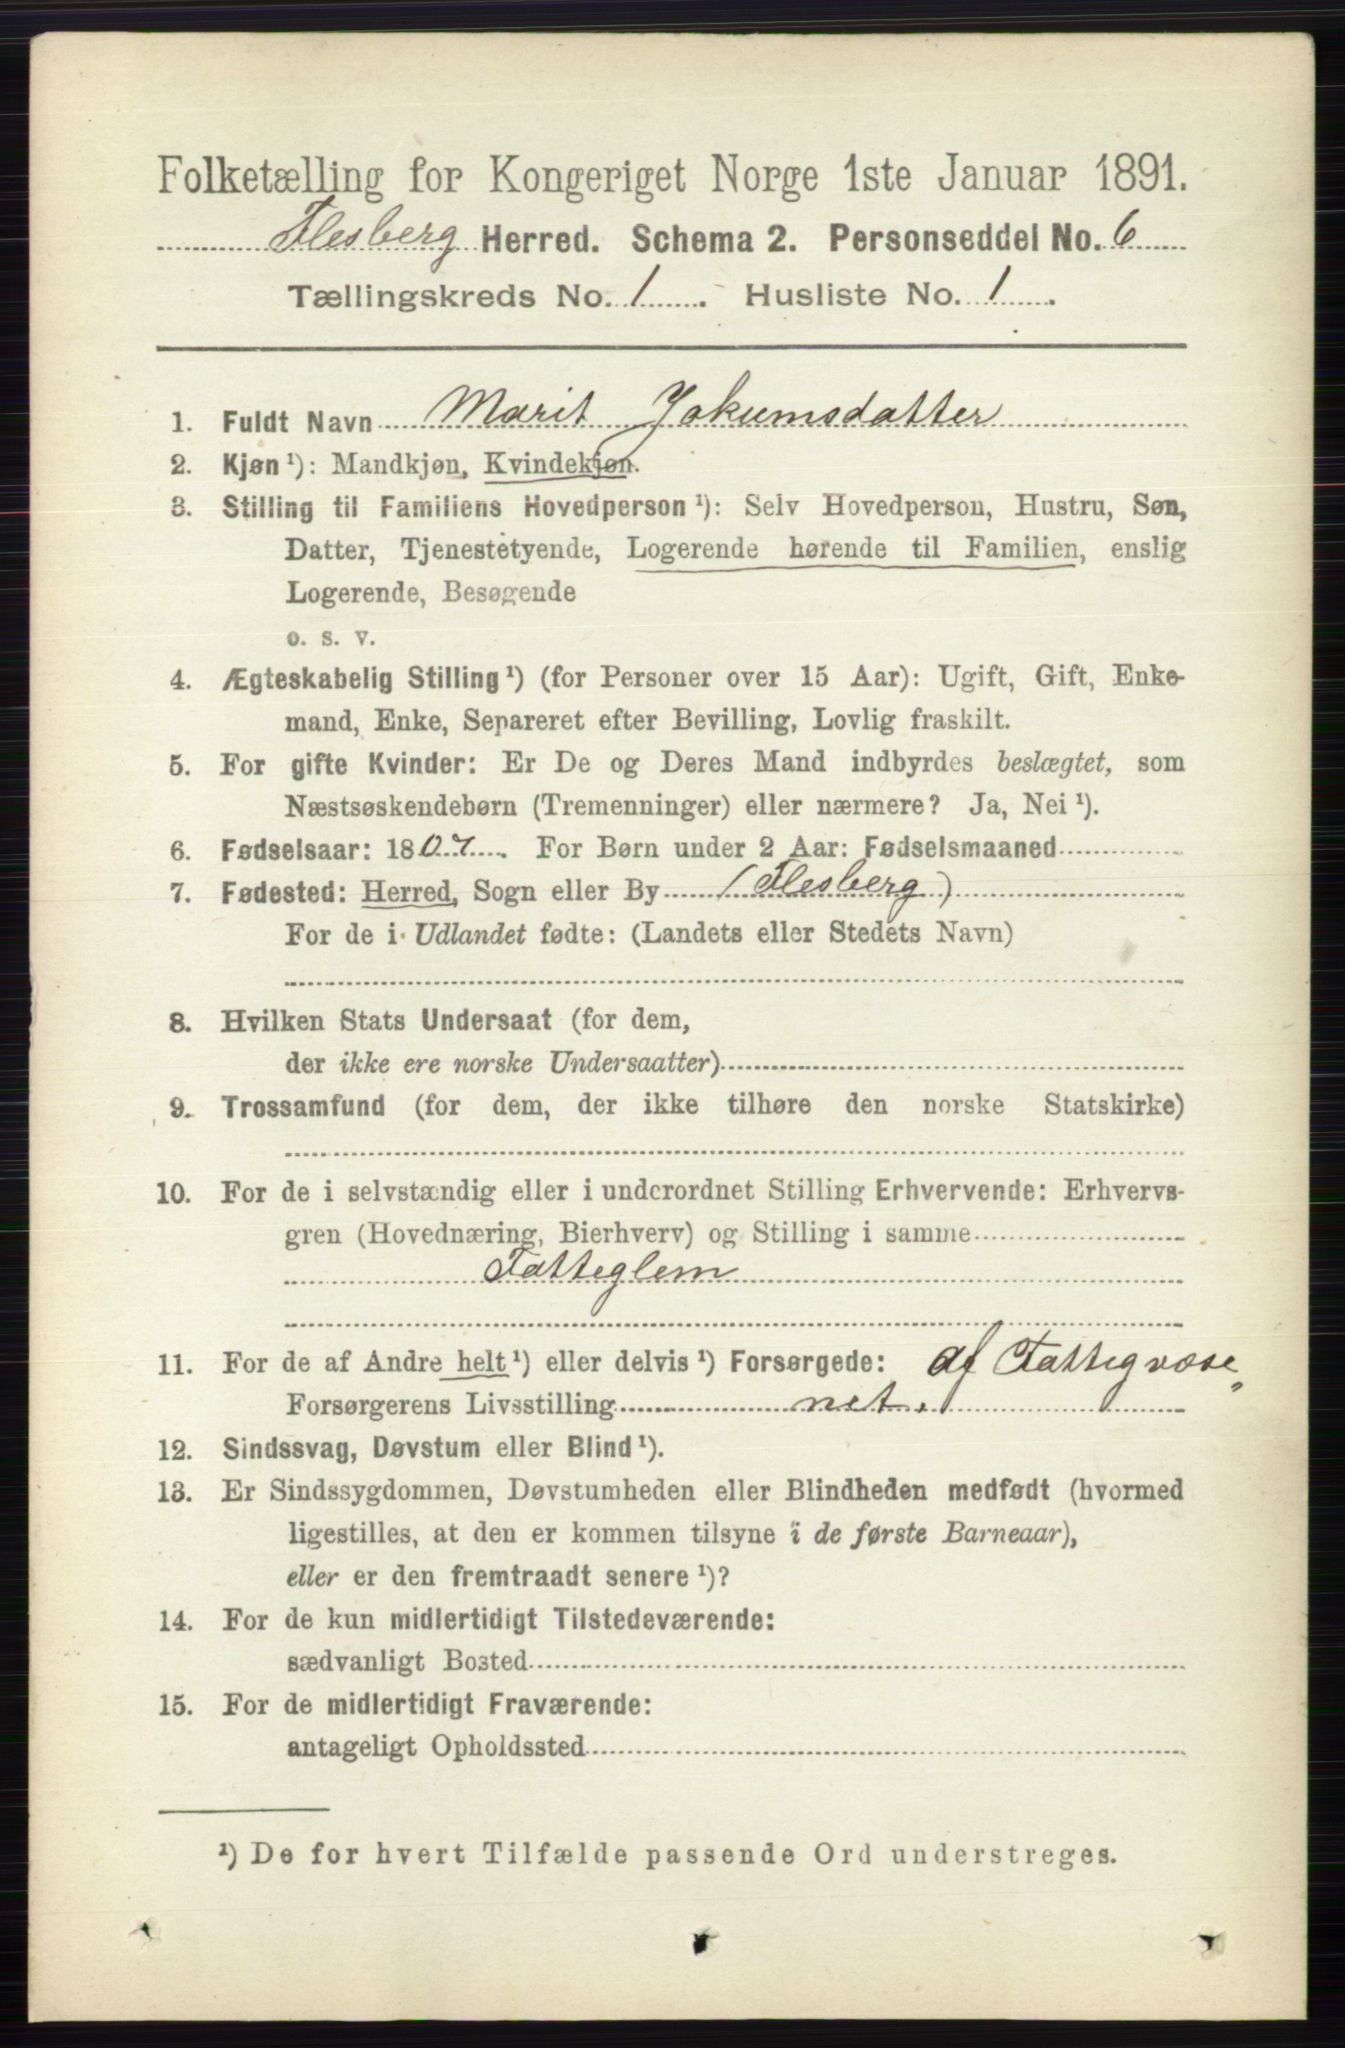 Folketælling for Kongeriget Norge 1ste Januar 1891.
Flesberg Herred. Schema 2. Personseddel No. 6
Tællingskreds No. 1. Husliste No. 1.
1. Fuldt Navn Marit Jokumsdatter
2. Kjøn ¹): Mandkjøn, Kvindekjøn.
3. Stilling til Familiens Hovedperson ¹): Selv Hovedperson, Hustru, Søn,
Datter, Tjenestetyende, Logerende hørende til Familien, enslig
Logerende, Besøgende
o. s. v.
4. Ægteskabelig Stilling ¹) (for Personer over 15 Aar): Ugift, Gift, Enke-
mand, Enke, Separeret efter Bevilling, Lovlig fraskilt.
5. For gifte Kvinder: Er De og Deres Mand indbyrdes beslægtet, som
Næstsøskendebørn (Tremenninger) eller nærmere? Ja, Nei ¹).
6. Fødselsaar: 1807. For Børn under 2 Aar: Fødselsmaaned
7. Fødested: Herred, Sogn eller By (Flesberg)
For de i Udlandet fødte: (Landets eller Stedets Navn)
8. Hvilken Stats Undersaat (for dem,
der ikke ere norske Undersaatter)
9. Trossamfund (for dem, der ikke tilhøre den norske Statskirke)
10. For de i selvstændig eller i underordnet Stilling Erhvervende: Erhvervs-
gren (Hovednæring, Bierhverv) og Stilling i samme
Fatteglem
11. For de af Andre helt ¹) eller delvis ¹) Forsørgede: af Fattigvæse„
Forsørgerens Livsstilling net.
12. Sindssvag, Døvstum eller Blind ¹).
13. Er Sindssygdommen, Døvstumheden eller Blindheden medfødt (hvormed
ligestilles, at den er kommen tilsyne i de første Barneaar),
eller er den fremtraadt senere ¹)?
14. For de kun midlertidigt Tilstedeværende:
sædvanligt Bosted
15. For de midlertidigt Fraværende:
antageligt Opholdssted
¹) De for hvert Tilfælde passende Ord understreges.